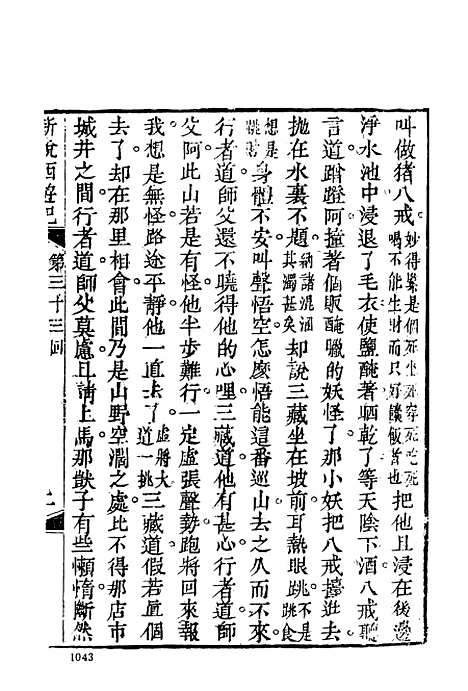 叫做猪八戒妙得緊是個死坐死穿死吃死喝不能生財而只好饢飯者也把他且浸在後邊
淨水池中浸退了毛衣使鹽醃著晒乾了等天陰下酒八戒聽
言道蹭蹬阿撞著個販醃臘的妖怪了那小妖把八戒擡進去
拋在水裏不題納諸混涵其濁甚矣却說三藏坐在坡前耳熱眼跳不是跳食想是跳財身體不安叫聲悟空怎麼悟能這番巡山去之久而不來
行者道師父還不曉得他的心哩三藏道他有甚心行者道師
父阿此山若是有怪他半步難行一定虛張聲勢跑將回來報
我想是無怪路途平靜他一直去了虛將大道一挑三藏道假若真個
去了却在那里相會此間乃是山野空濶之處比不得那店市
城井之間行者道師父莫慮且請上馬那獃子有些懶惰斷然
新說西遊記
第三十三回
1043